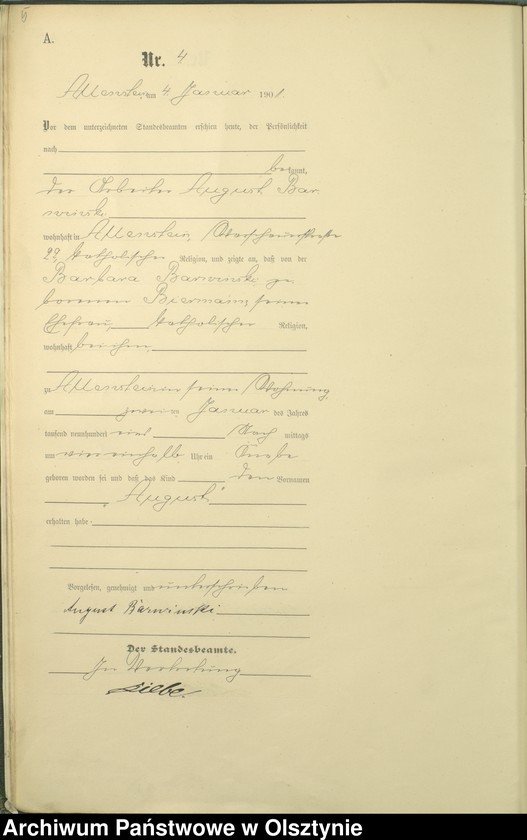 A.
Nr. 4
Allenstein am 4 Januar 1901.
Vor dem unterzeichneten Standesbeamten erschien heute, der Persönlichkeit
nach
bekannt,
der Arbeiter August Bar
winski
wohnhaft in Allenstein,
22, katholischer Religion, und zeigte an, daß von der
Barbara Barwinski ge
borenen Biermann, seiner
Ehefrau, katholischer Religion,
wohnhaft bei ihm
zu Allenstein in seiner Wohnung
am zweiten Januar des Jahres
tausend neunhundert eins Nach mittags
um vier einhalb Uhr ein Knabe
geboren worden sei und daß das Kind den Vornamen
„August“
erhalten habe
Vorgelesen, genehmigt und unterschrieben
August Barwinski
Der Standesbeamte.
In Vertretung
Liebe.
Archiwum Państwowe w Olsztynie